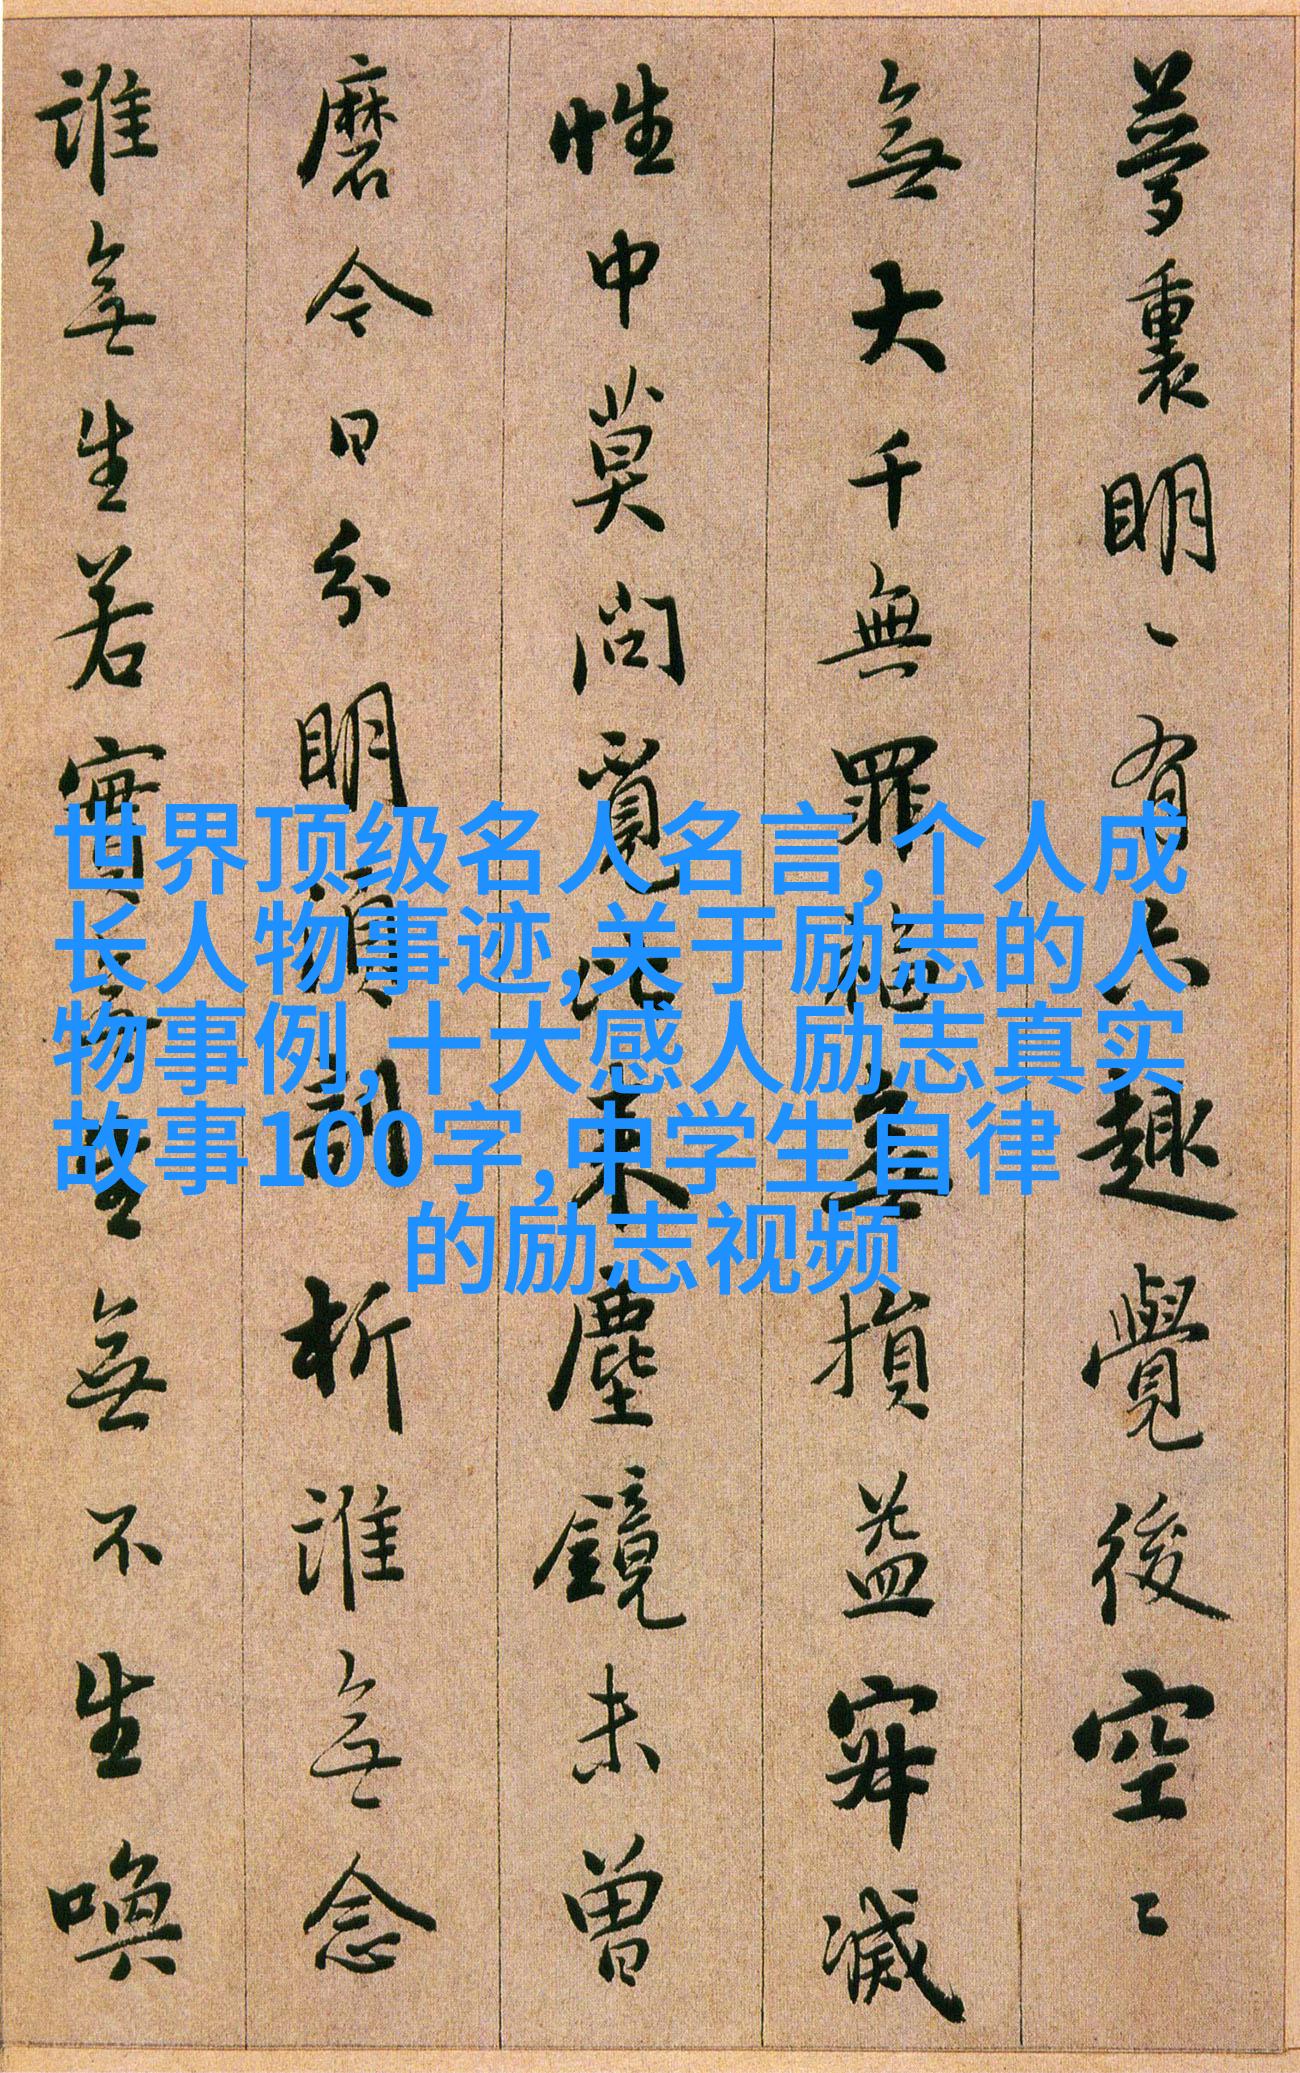 夢裏明〻有六趣覺後空〻
無大千無罪福無損益寂滅
性中莫問覓比來塵鏡未曾
磨今日分明須剖析誰無念
誰無生若實無生無不生喚
世界顶级名人名言,个人成
长人物事迹,关于励志的人
物事例,十大感人励志真实
故事100字,中学生自律
的励志视频